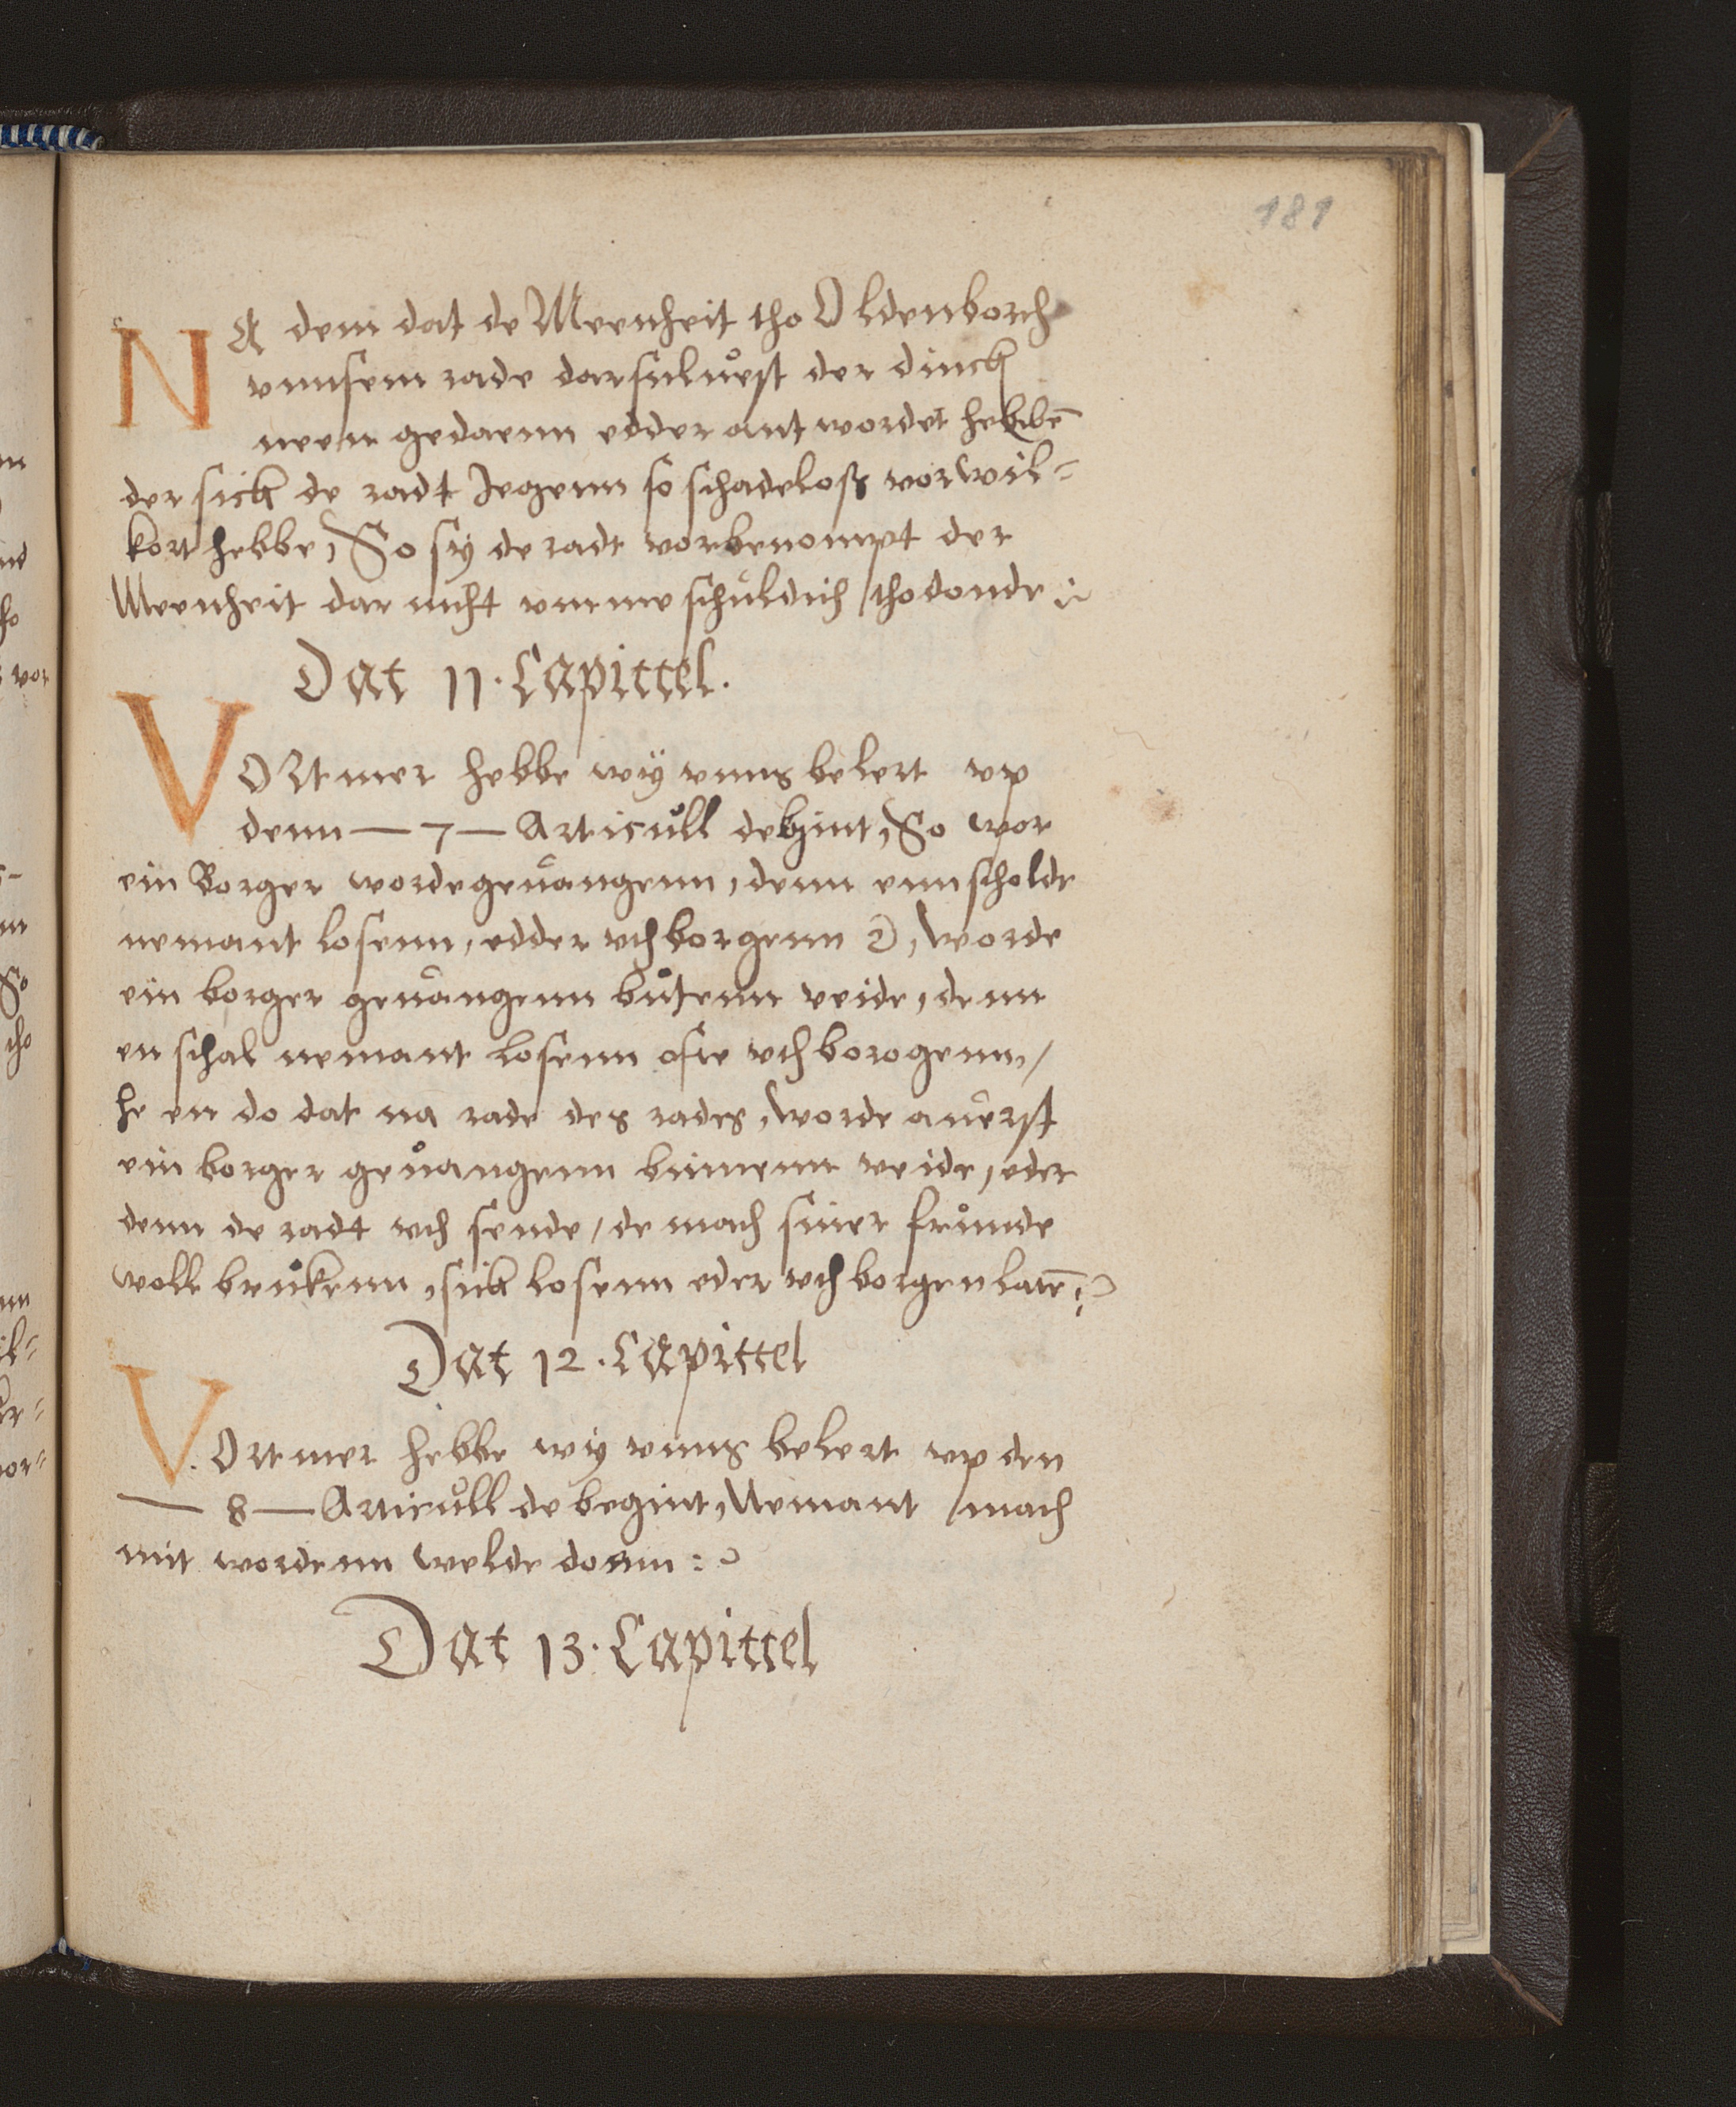 181
NA dem dat de Meenheit tho Oldenborch
vnnsem rade darsuluest der dinck
neen gedaenn edder antwordet hebbē
der sick de radt Jegenn so schadeloß vorwil=
kort hebbe, So sy de radt vorbenompt der
Meenheit dar nicht vmme schuldich thodonde
Dat 11. Capittel.
VORtmer hebbe wÿ vnns belert vp
denn — 7 — Articull debgint, So wor
ein Borger worde geuangenn, denn enn scholde
nemant losenn, edder vthborgenn, Worde
ein borger geuangenn butenn veide, denn
en schal nemant losenn ofte vthborogenn, /
he en do dat na rade des rades, worde auerst
ein borger geuangenn binnenn veide, eder
denn de radt vth sende, de mach siner frunde
woll brukenn, sick losenn eder vthborgen latē
Dat 12. Capittel
VOrtmer hebbe wy vnns belert vp den
— 8 — Articull de begint, Nemant mach
mit wordenn welde doenn :
Dat 13. Capittel